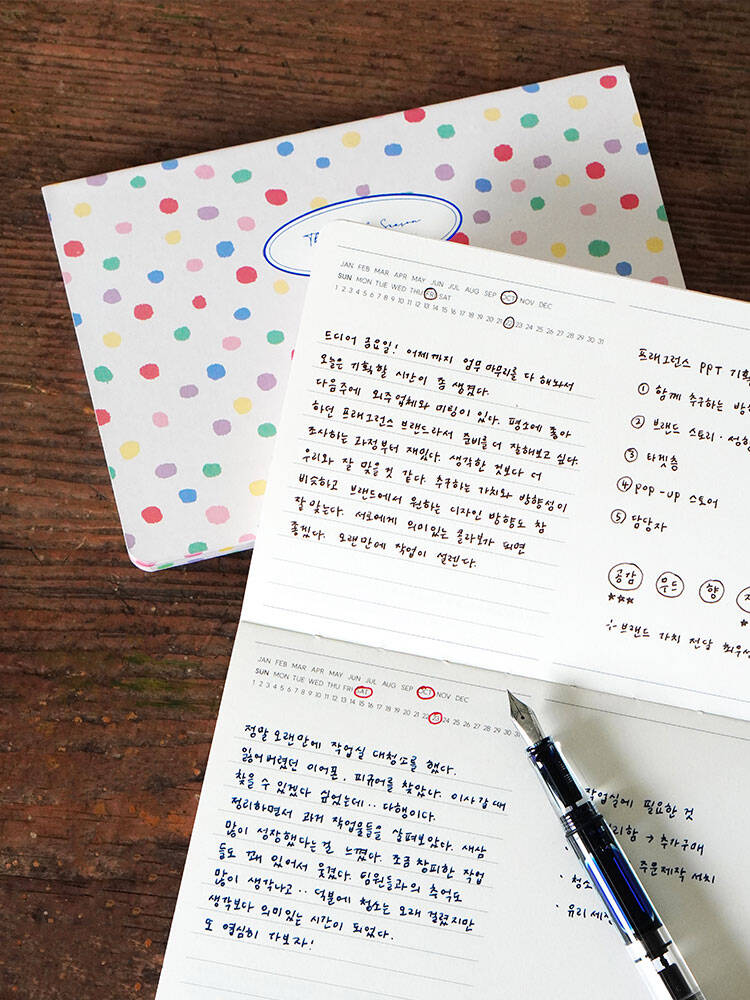 JAN FEB MAR APR MAY JUN JUL AUG SEP OCT NOV DEC
SUN MON TUE WED THU FRI SAT
1 2 3 4 5 6 7 8 9 10 11 12 13 14 15 16 17 18 19 20 21 22 23 24 25 26 27 28 29 30 31
드디어 금요일! 어제까지 업무 마무리를 다 해놔서
오늘은 기획할 시간이 좀 생겼다.
다음주에 외주업체와 미팅이 있다. 평소에 좋아
하던 프래그런스 브랜드라서 준비를 더 잘해보고 싶다.
조사하는 과정부터 재밌다. 생각한 것보다 더
우리와 잘 맞을 것 같다. 추구하는 가치와 방향성이
비슷하고 브랜드에서 원하는 디자인 방향도 참
잘 맞는다. 서로에게 의미있는 콜라보가 되면
좋겠다. 오랜만에 작업이 설렌다.
프래그런스 PPT 기획
① 함께 추구하는 방
② 브랜드 스토리·성
③ 타겟층
④ pop-up 스토어
⑤ 담당자
공감 무드 향
***
브랜드 가치 전달
JAN FEB MAR APR MAY JUN JUL AUG SEP OCT NOV DEC
SUN MON TUE WED THU FRI SAT
1 2 3 4 5 6 7 8 9 10 11 12 13 14 15 16 17 18 19 20 21 22 23 24 25 26 27 28 29 30 31
정말 오랜만에 작업실 대청소를 했다.
잃어버렸던 이어폰, 피규어를 찾았다. 이사갈 때
찾을 수 있겠다 싶었는데.. 다행이다.
정리하면서 과거 작업물들을 살펴보았다. 새삼
많이 성장했다는 걸 느꼈다. 조금 창피한 작업
들도 꽤 있어서 웃겼다. 팀원들과의 추억도
많이 생각나고.. 덕분에 청소는 오래 걸렸지만
생각보다 의미있는 시간이 되었다.
또 열심히 가보자!
작업실에 필요한 것
리함 → 추가구매
주문제작 서치
· 청소
· 유리 세정